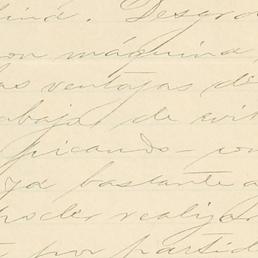 lina. Desgra
con máquina
las ventajas di
trabajo de evit
picando - con
ya bastante a
poder realizar
por partid